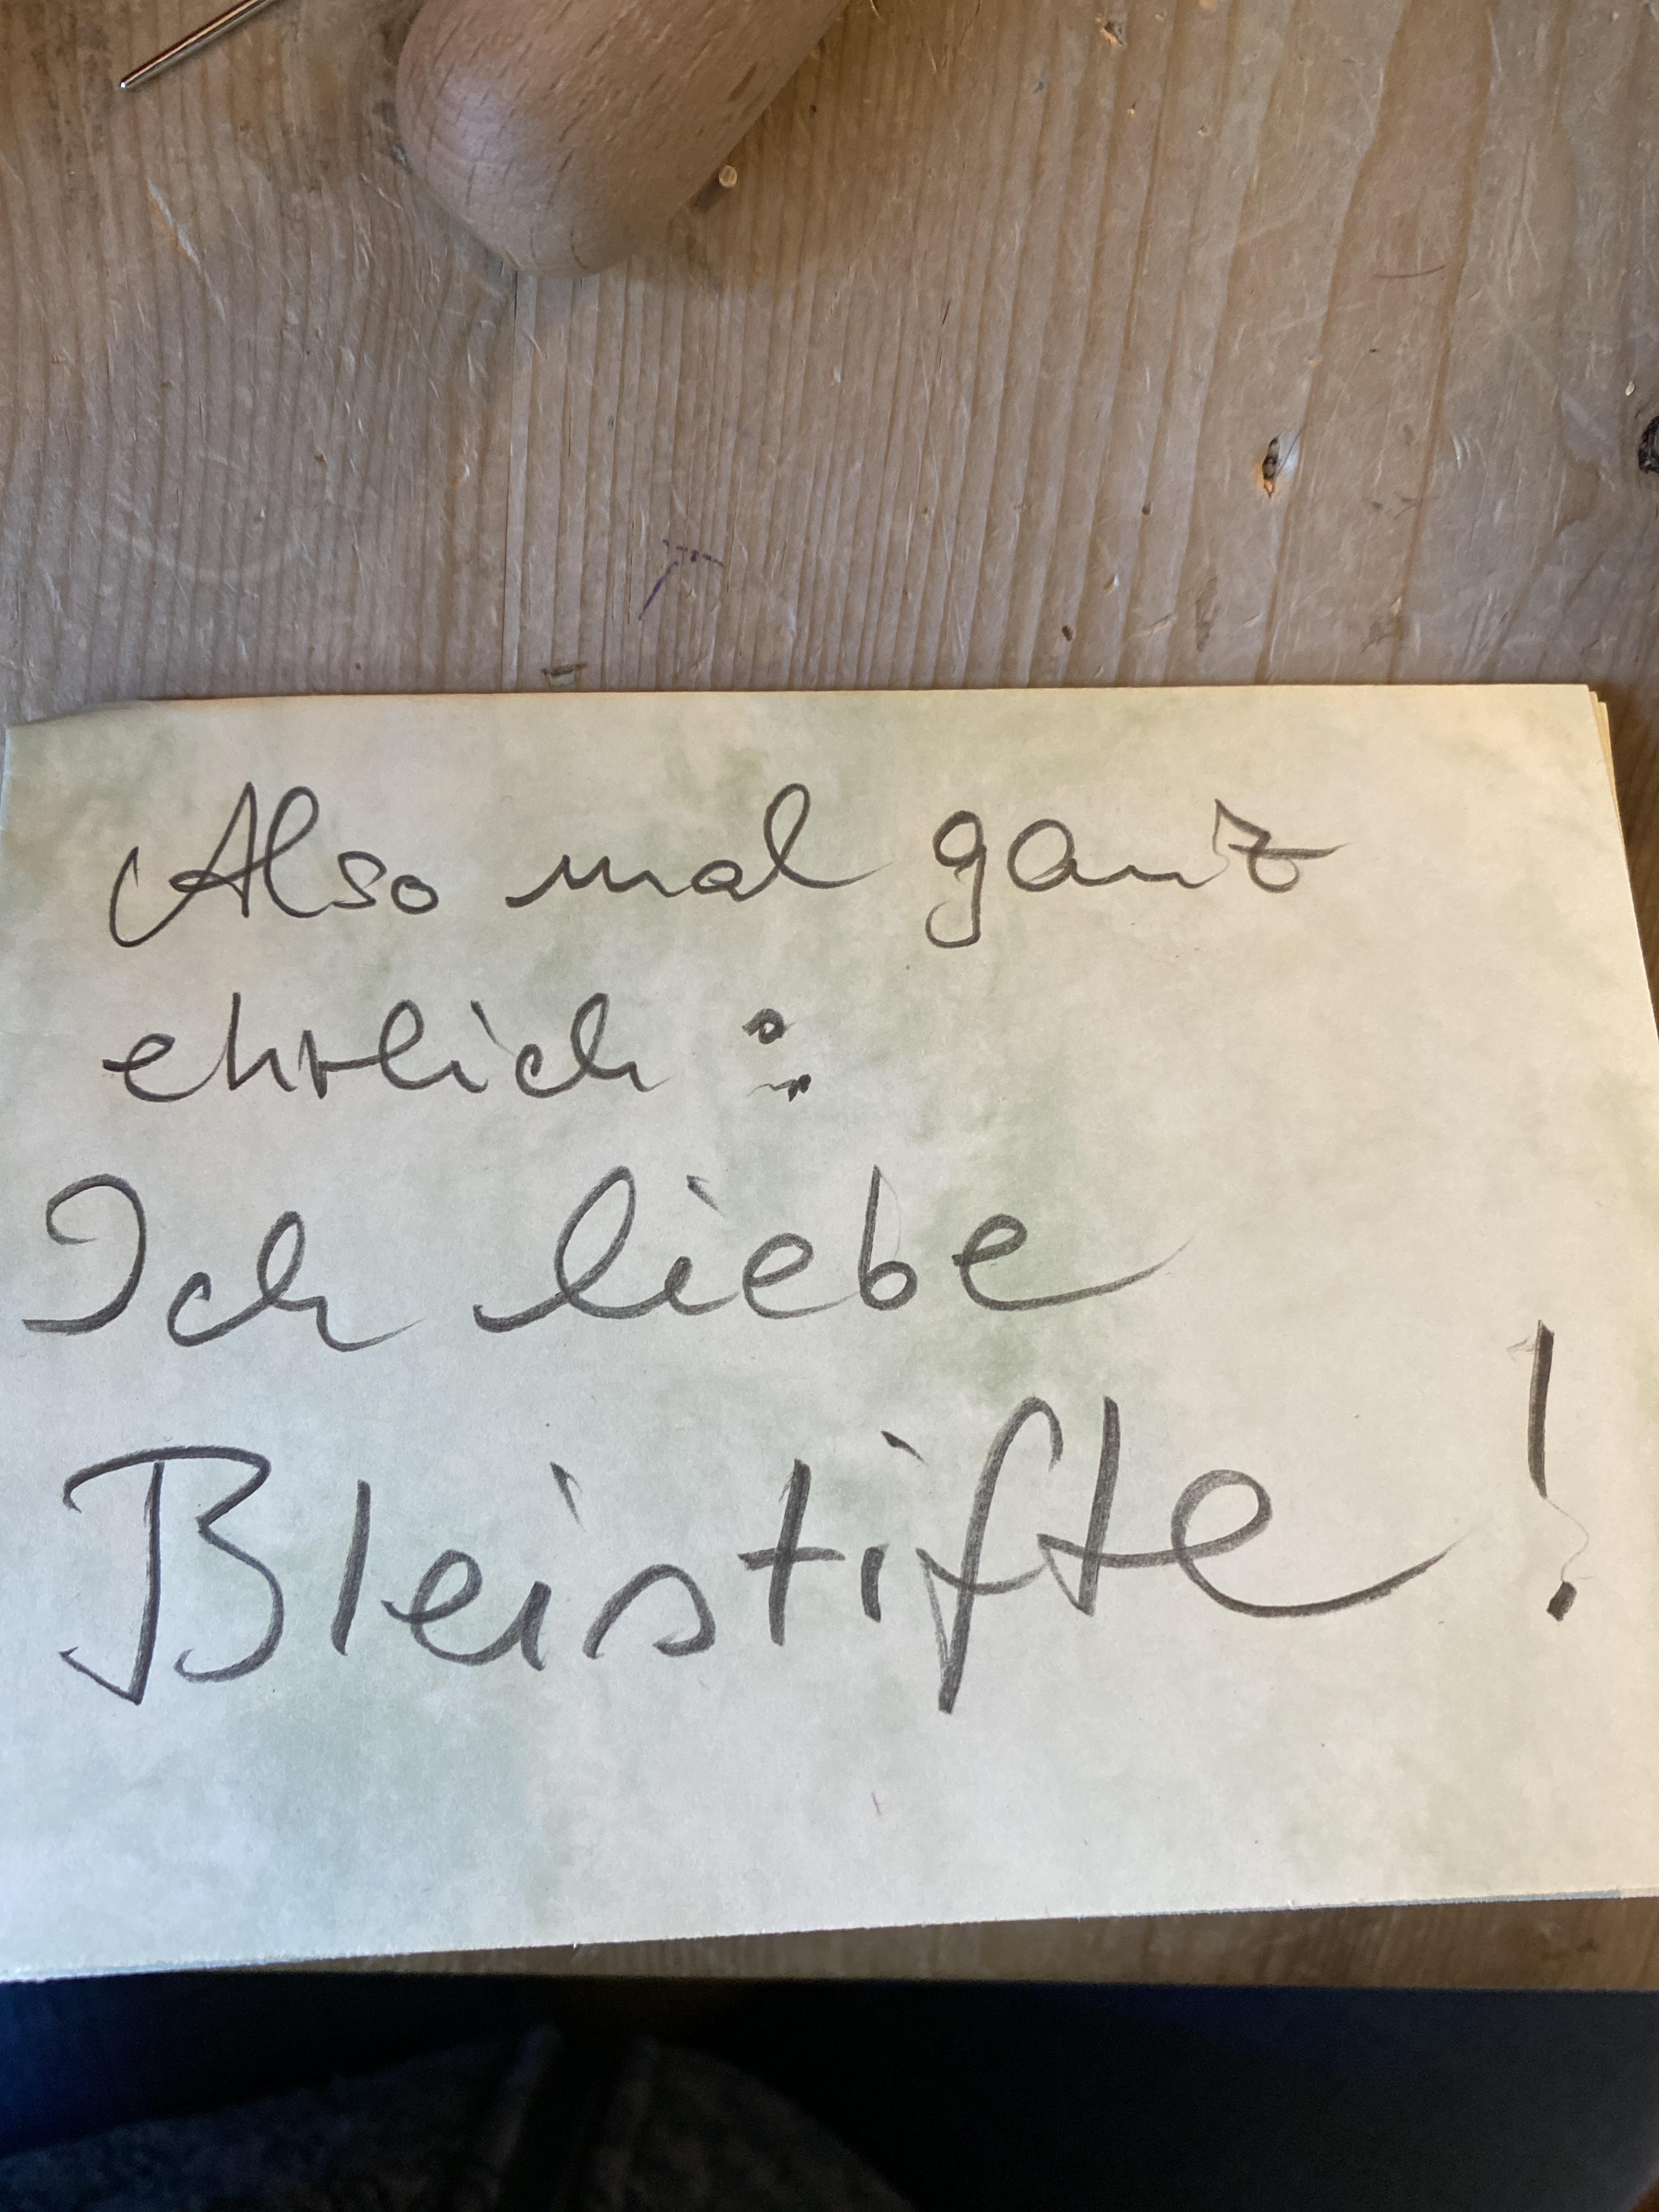 Also mal ganz
ehrlich:
Ich liebe
Bleistifte!